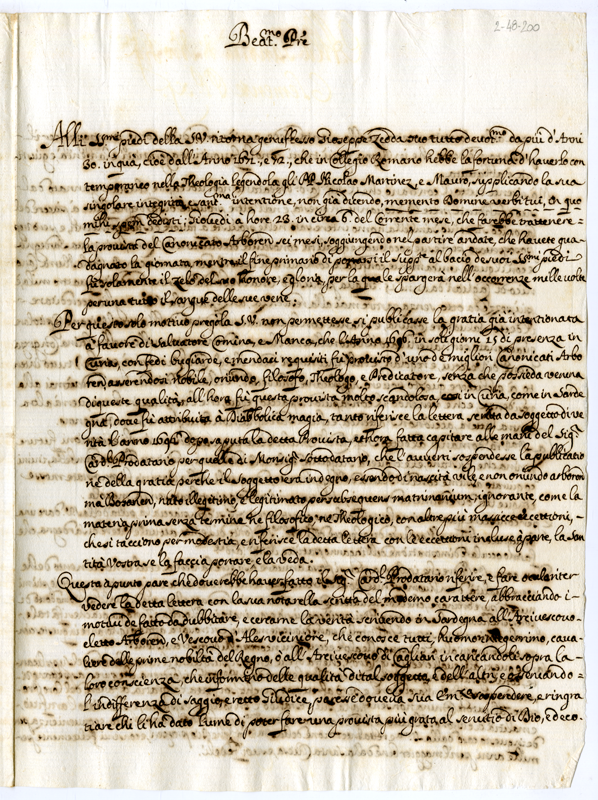 2-48-200
Beat.mo Pre
Alli S.mi piedi della S.V. ritorna genuflesso Gioseppe Zedda suo tutto deuot.mo da più d'Anni
30. in quà, cioè dall'Anno 1671, e 72, che in Collegio Romano hebbe la fortuna d'hauerlo con
temporaneo nella Theologia legendola gli PP. Nicolao Martinez, e Mauro, supplicando la sua
singolare integrità, e sant.ma intentione, non già dicendo, memento Domine verbi tui, in quo
mihi spem dedisti; Giouedi a hore 23. in circa 6. del Corrente mese, che farebbe trattenere
la prouista del Canonicato Arboren sei mesi, soggiungendo nel partire andate, che hauete gua
dagnato la giornata, mentre il fine primario di portarsi il Supp.te al bacio de suoi S.mi piedi
fù solamente il zelo del suo honore, e gloria, per la quale spargerà nell'occorrenze mille volte
per una tutto il sangue delle sue vene.
Per questo solo motiuo prega la S.V. non permettesse si publicasse la gratia già intentionata
à fauore di Saluatore Comina, e Manca, che l'Anno 1696. in soli giorni 15 di presenza in
Curia, con fedi bugiarde, e mendaci requisiti fù prouisto d'uno de migliori Canonicati Arbo
ren, asserendosi Nobile, oriundo, filosofo, Theologo, e Predicatore, senza che possieda veruna
di queste qualità, all'hora fù questa prouista molto scandolosa, così in Curia, come in Sarde
gna, doue fù attribuita à Diabbolica magia, tanto riferisce la lettera scritta da soggetto di ve
rità l'Anno 1696 dopo saputa la detta Prouista, et hora fatta capitare alle mani del Sig.r
Card.l Prodatario per quella di Monsig.r Sottodatario, che l'auuerti sospendesse la publicatio
ne della gratia, perche il soggetto era indegno, essendo di nascita vile, e non oriundo arboren
mà Bosanen, nato illegitimo, e legitimato per subsequens matrimonium, ignorante, come la
materia prima senza termine, ne filosofico, ne Theologico, con altre più massicce eccettioni,
che si tacciono per modestia, e riferisce la detta lettera con le eccettioni incluse à parte, la San
tità Vostra se la faccia portare, e la veda.
Questo à punto pare che douerebbe hauer fatto il Sig.r Card.l Prodatario riferire, e fare oculariter
vedere la detta lettera con la sua notarella scritta del medemo carattere, abbracciando i
motiui de fatto da dubbitare, e cercarne la verità scriuendo in Sardegna all'Arciuescouo
eletto Arboren, e Vescouo d'Ales viciniore, che conosce tutti, huomo integerrimo, caua
liero delle prime nobiltà del Regno, ò all'Arciuescouo di Cagliari incaricandole sopra la
loro conscienza, che informino delle qualità di tal soggetto, e dell'altri, osseruando
l'indifferenza di saggio, e retto Giudice, parte doueua Sua Em.za sospendere, e ringra
tiare chi li hà dato lume di poter fare una prouista più grata, al seruitio di Dio, e deco.